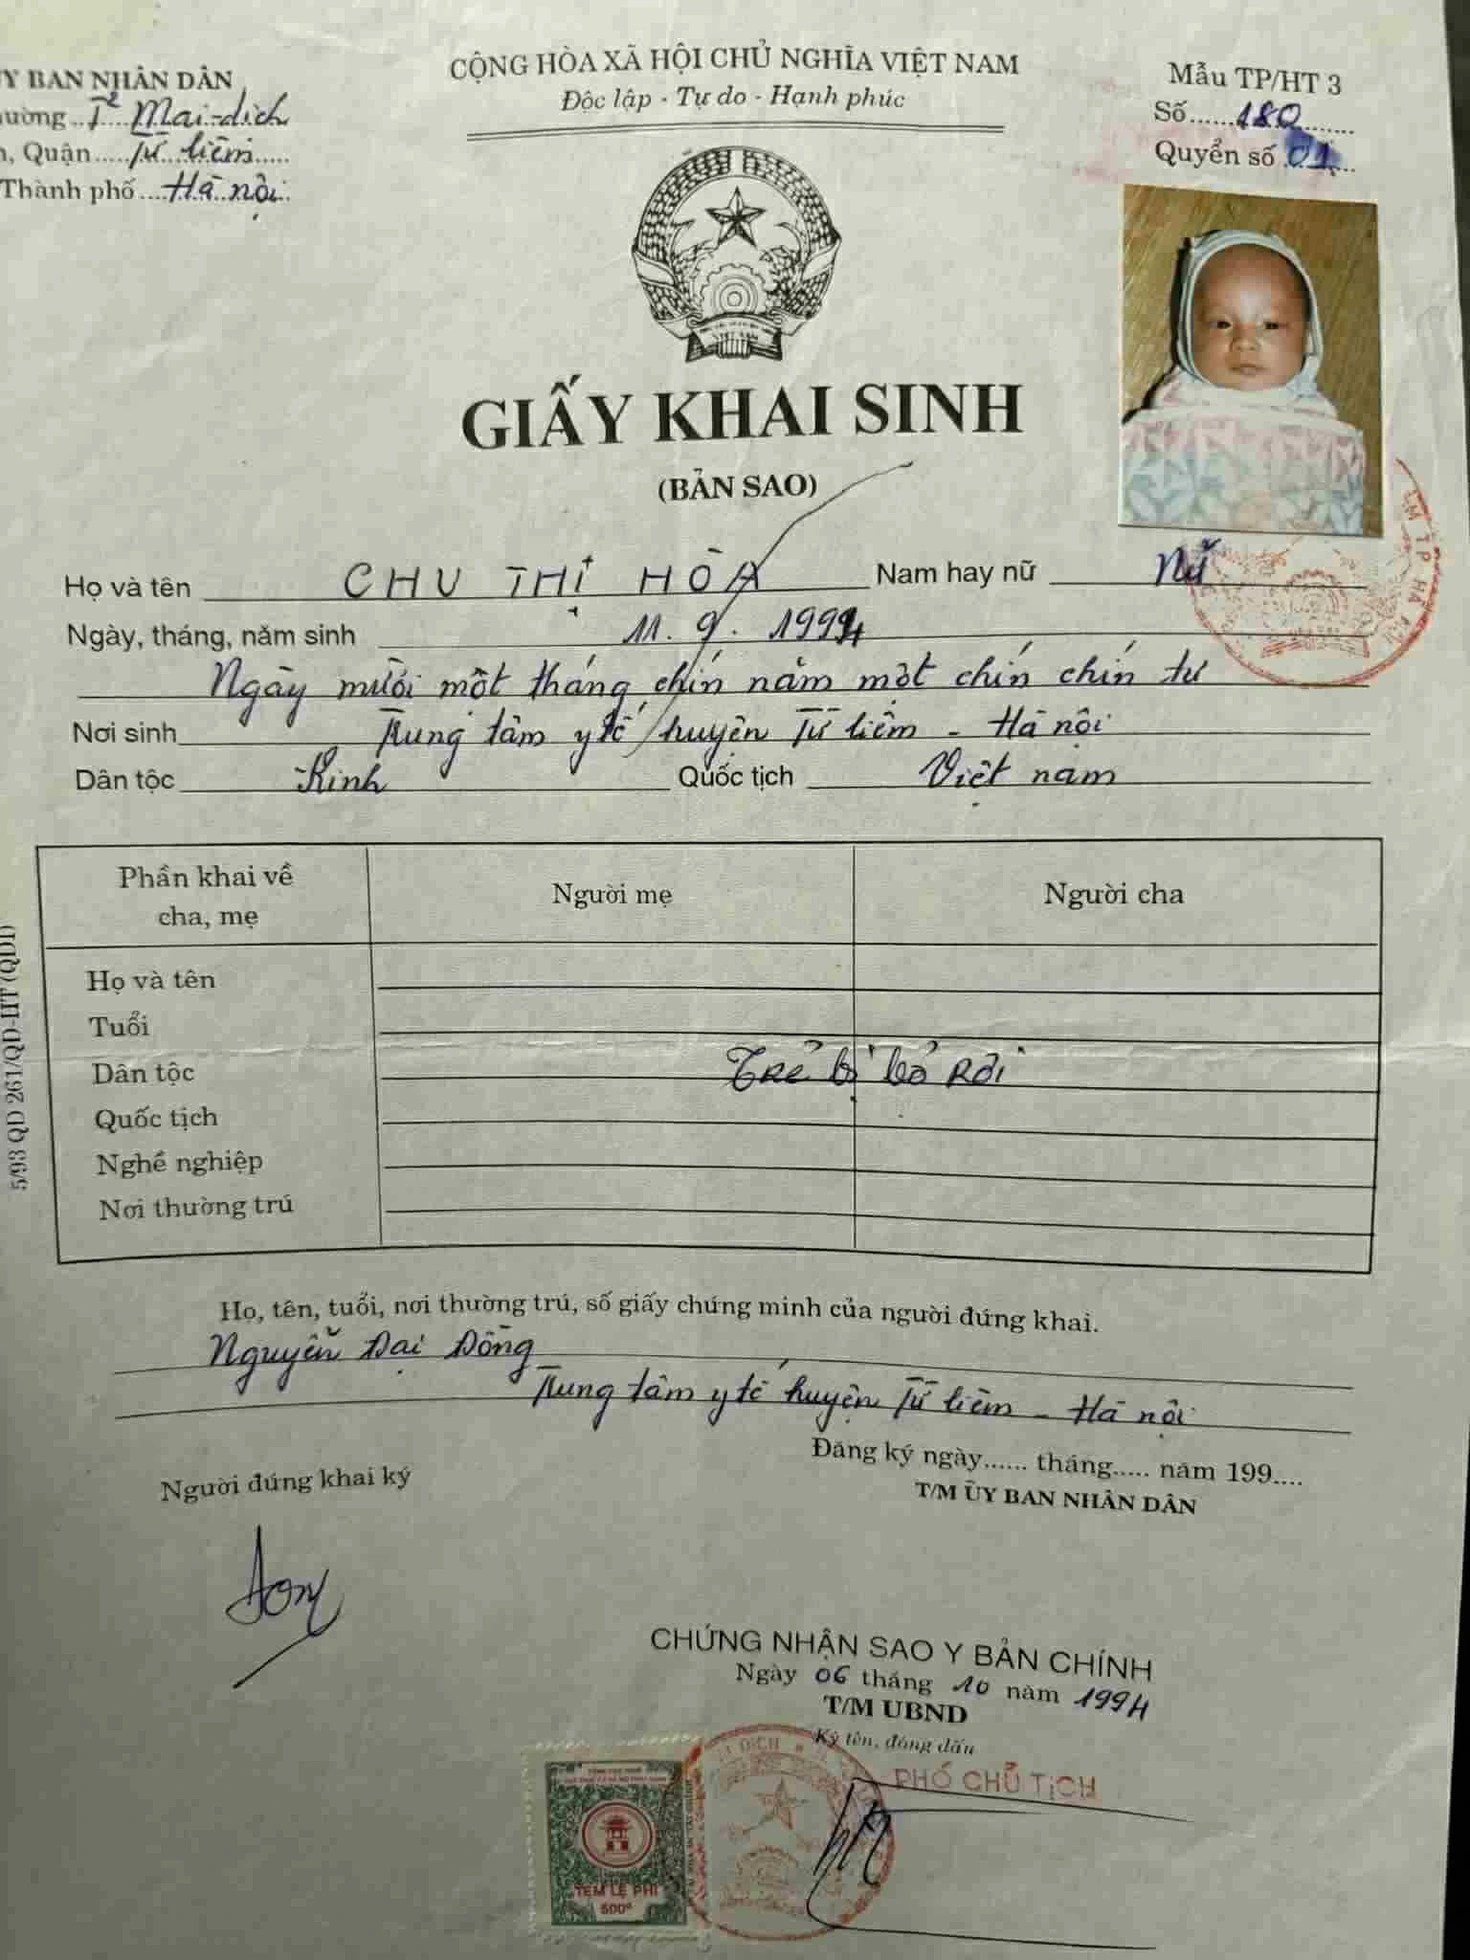 Y BAN NHÂN DÂN
ường T² Mai-dịch
, Quận Từ liêm
Thành phố Hà nội
CỘNG HÒA XÃ HỘI CHỦ NGHĨA VIỆT NAM
Độc lập - Tự do - Hạnh phúc
Mẫu TP/HT 3
Số 180
Quyển số 01
GIẤY KHAI SINH
(BẢN SAO)
Họ và tên CHU THỊ HÒA Nam hay nữ Nữ
Ngày, tháng, năm sinh 11.9.1994
Ngày mười một tháng chín năm một chín chín tư
Nơi sinh Trung tâm y tế huyện Từ liêm - Hà nội
Dân tộc Kinh Quốc tịch Việt nam
Phần khai về cha, mẹ
Người mẹ
Người cha
Họ và tên
Tuổi
Dân tộc
Trẻ bị bỏ rơi
Quốc tịch
Nghề nghiệp
Nơi thường trú
5/93 QD 261/QD-HT (QDI)
Họ, tên, tuổi, nơi thường trú, số giấy chứng minh của người đứng khai.
Nguyễn Đại Đồng
Trung tâm y tế huyện Từ liêm - Hà nội
Đăng ký ngày...... tháng..... năm 199....
T/M ỦY BAN NHÂN DÂN
Người đứng khai ký
CHỨNG NHẬN SAO Y BẢN CHÍNH
Ngày 06 tháng 10 năm 1994
T/M UBND
Ký tên, đóng dấu
PHÓ CHỦ TỊCH
TEM LỆ PHÍ
500đ